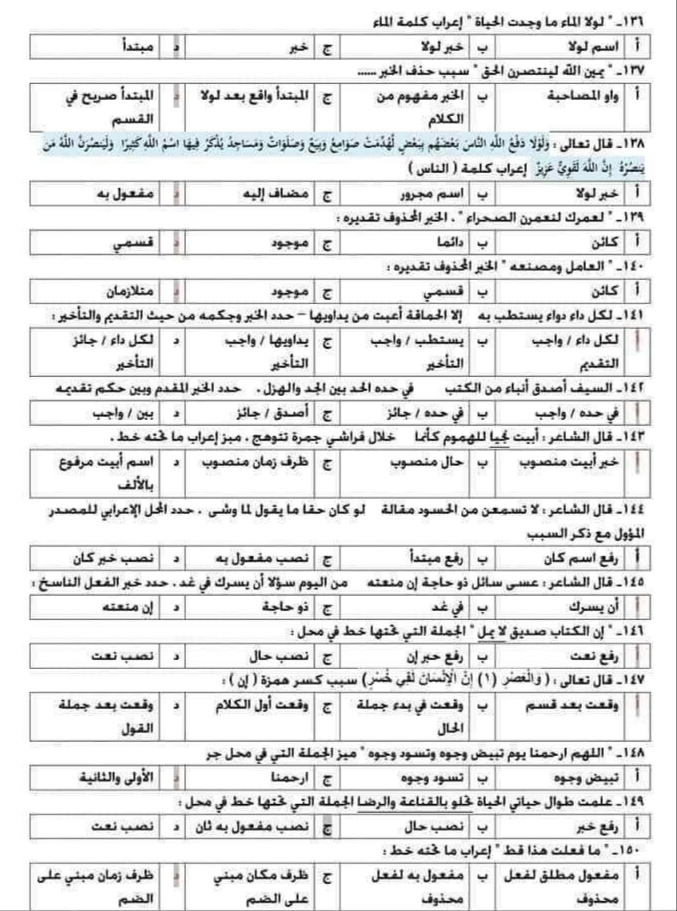 ١٣٦ـ " لولا الماء ما وجدت الحياة " إعراب كلمة الماء
أ اسم لولا ب خبر لولا ج خبر د مبتدأ
١٣٧ـ " يمين الله لينتصرن الحق " سبب حذف الخبر ......
أ واو المصاحبة ب الخبر مفهوم من الكلام ج المبتدأ واقع بعد لولا د المبتدأ صريح في القسم
١٣٨ـ قال تعالى : وَلَوْلَا دَفْعُ اللَّهِ النَّاسَ بَعْضَهُم بِبَعْضٍ لَّهُدِّمَتْ صَوَامِعُ وَبِيَعٌ وَصَلَوَاتٌ وَمَسَاجِدُ يُذْكَرُ فِيهَا اسْمُ اللَّهِ كَثِيرًا وَلَيَنصُرَنَّ اللَّهُ مَن
يَنصُرُهُ إِنَّ اللَّهَ لَقَوِيٌّ عَزِيزٌ إعراب كلمة ( الناس )
أ خبر لولا ب اسم مجرور ج مضاف إليه د مفعول به
١٣٩ـ " لعمرك لنعمرن الصحراء " ، الخبر المحذوف تقديره :
أ كائن ب دائما ج موجود د قسمي
١٤٠ـ " العامل ومصنعه " الخبر المحذوف تقديره :
أ كائن ب قسمي ج موجود د متلازمان
١٤١ـ لكل داء دواء يستطب به إلا الحماقة أعيت من يداويها – حدد الخبر وحكمه من حيث التقديم والتأخير :
أ لكل داء / واجب التقديم ب يستطب / واجب التأخير ج يداويها / واجب التأخير د لكل داء / جائز التأخير
١٤٢ـ السيف أصدق أنباء من الكتب في حده الحد بين الجد والهزل . حدد الخبر المقدم وبين حكم تقديمه
أ في حده / واجب ب في حده / جائز ج أصدق / جائز د بين / واجب
١٤٣ـ قال الشاعر : أبيت نجيا للهموم كأنما خلال فراشي جمرة تتوهج . ميز إعراب ما تحته خط .
أ خبر أبيت منصوب ب حال منصوب ج ظرف زمان منصوب د اسم أبيت مرفوع بالألف
١٤٤ـ قال الشاعر : لا تسمعن من الحسود مقالة لو كان حقا ما يقول لما وشى . حدد المحل الإعرابي للمصدر
المؤول مع ذكر السبب
أ رفع اسم كان ب رفع مبتدأ ج نصب مفعول به د نصب خبر كان
١٤٥ـ قال الشاعر : عسى سائل ذو حاجة إن منعته من اليوم سؤلا أن يسرك في غد . حدد خبر الفعل الناسخ :
أ أن يسرك ب في غد ج ذو حاجة د إن منعته
١٤٦ـ " إن الكتاب صديق لا يمل " الجملة التي تحتها خط في محل :
أ رفع نعت ب رفع خبر إن ج نصب حال د نصب نعت
١٤٧ـ قال تعالى : ( وَالْعَصْرِ (١) إِنَّ الْإِنسَانَ لَفِي خُسْرٍ ) سبب كسر همزة ( إن ) :
أ وقعت بعد قسم ب وقعت في بدء جملة الحال ج وقعت أول الكلام د وقعت بعد جملة القول
١٤٨ـ " اللهم ارحمنا يوم تبيض وجوه وتسود وجوه " ميز الجملة التي في محل جر
أ تبيض وجوه ب تسود وجوه ج ارحمنا د الأولى والثانية
١٤٩ـ علمت طوال حياتي الحياة تحلو بالقناعة والرضا الجملة التي تحتها خط في محل :
أ رفع خبر ب نصب حال ج نصب مفعول به ثان د نصب نعت
١٥٠ـ " ما فعلت هذا قط " إعراب ما تحته خط :
أ مفعول مطلق لفعل محذوف ب مفعول به لفعل محذوف ج ظرف مكان مبني على الضم د ظرف زمان مبني على الضم